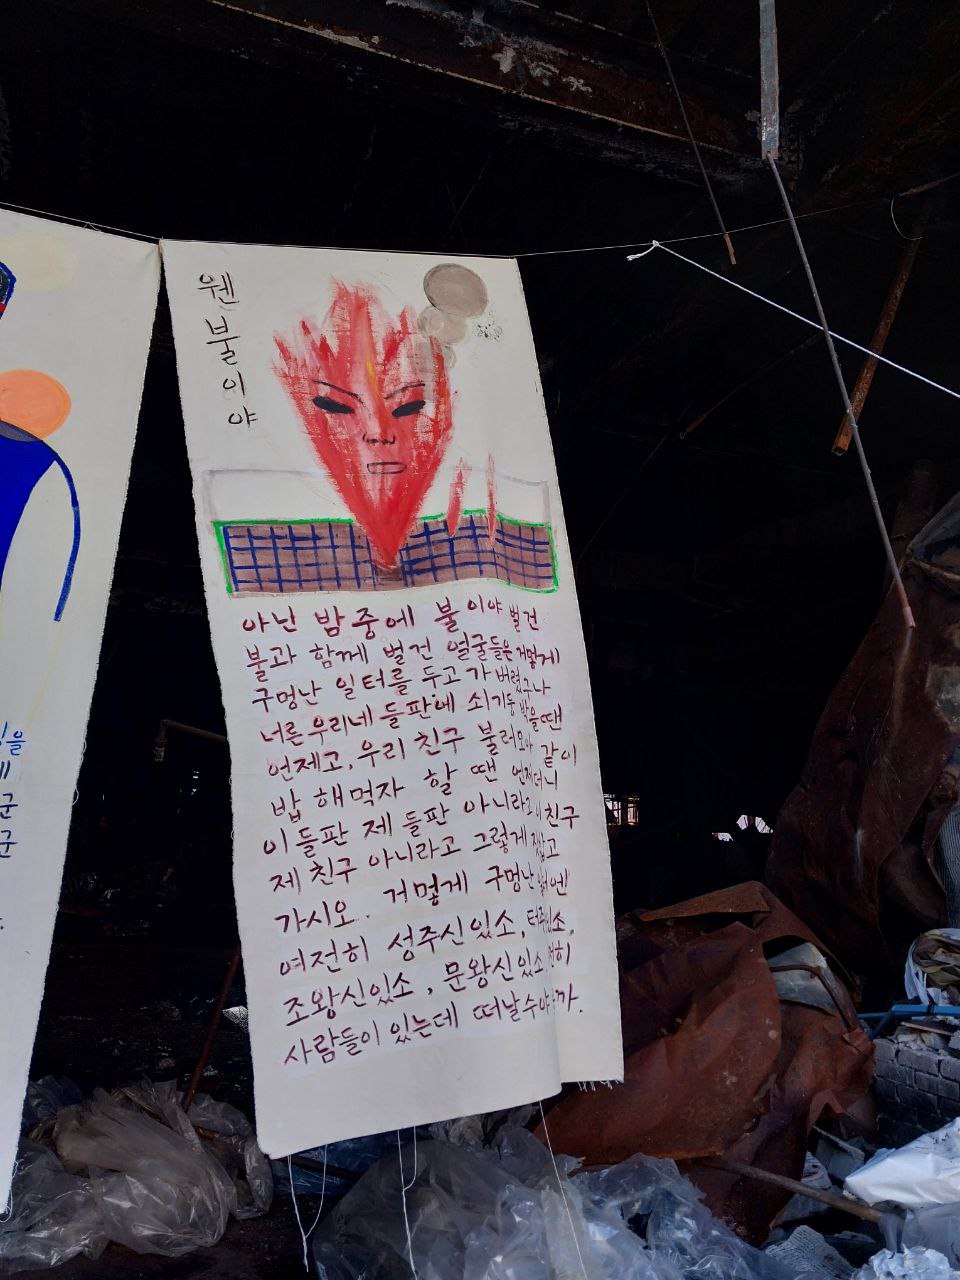 웬
불
이
야
아닌 밤중에 불이야 벌건
불과 함께 벌건 얼굴들은 거멓게
구멍난 일터를 두고 가버렸구나
너른 우리네 들판에 쇠기둥 박을땐
언제고, 우리 친구 불러모아 같이
밥 해먹자 할 땐 언제더니
이 들판 제 들판 아니라고 친구
제 친구 아니라고 그렇게
가시오. 거멓게 구멍난
여전히 성주신있소, 터주있소,
조왕신있소, 문왕신있소
사람들이 있는데 떠날수야
을
군
군